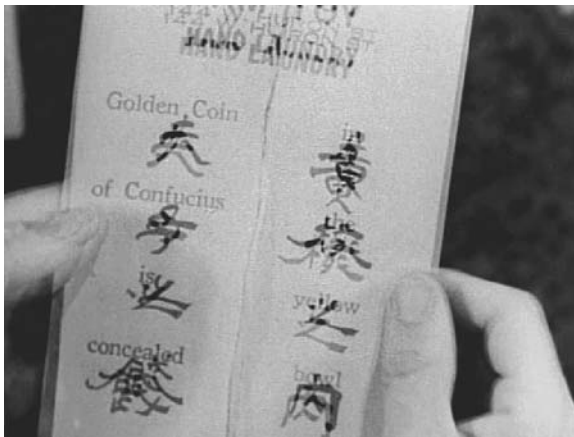 HAND LAUNDRY
Golden Coin
夫
of Confucius
子
is
之
concealed
in
黃
the
yellow
之
bowl
內